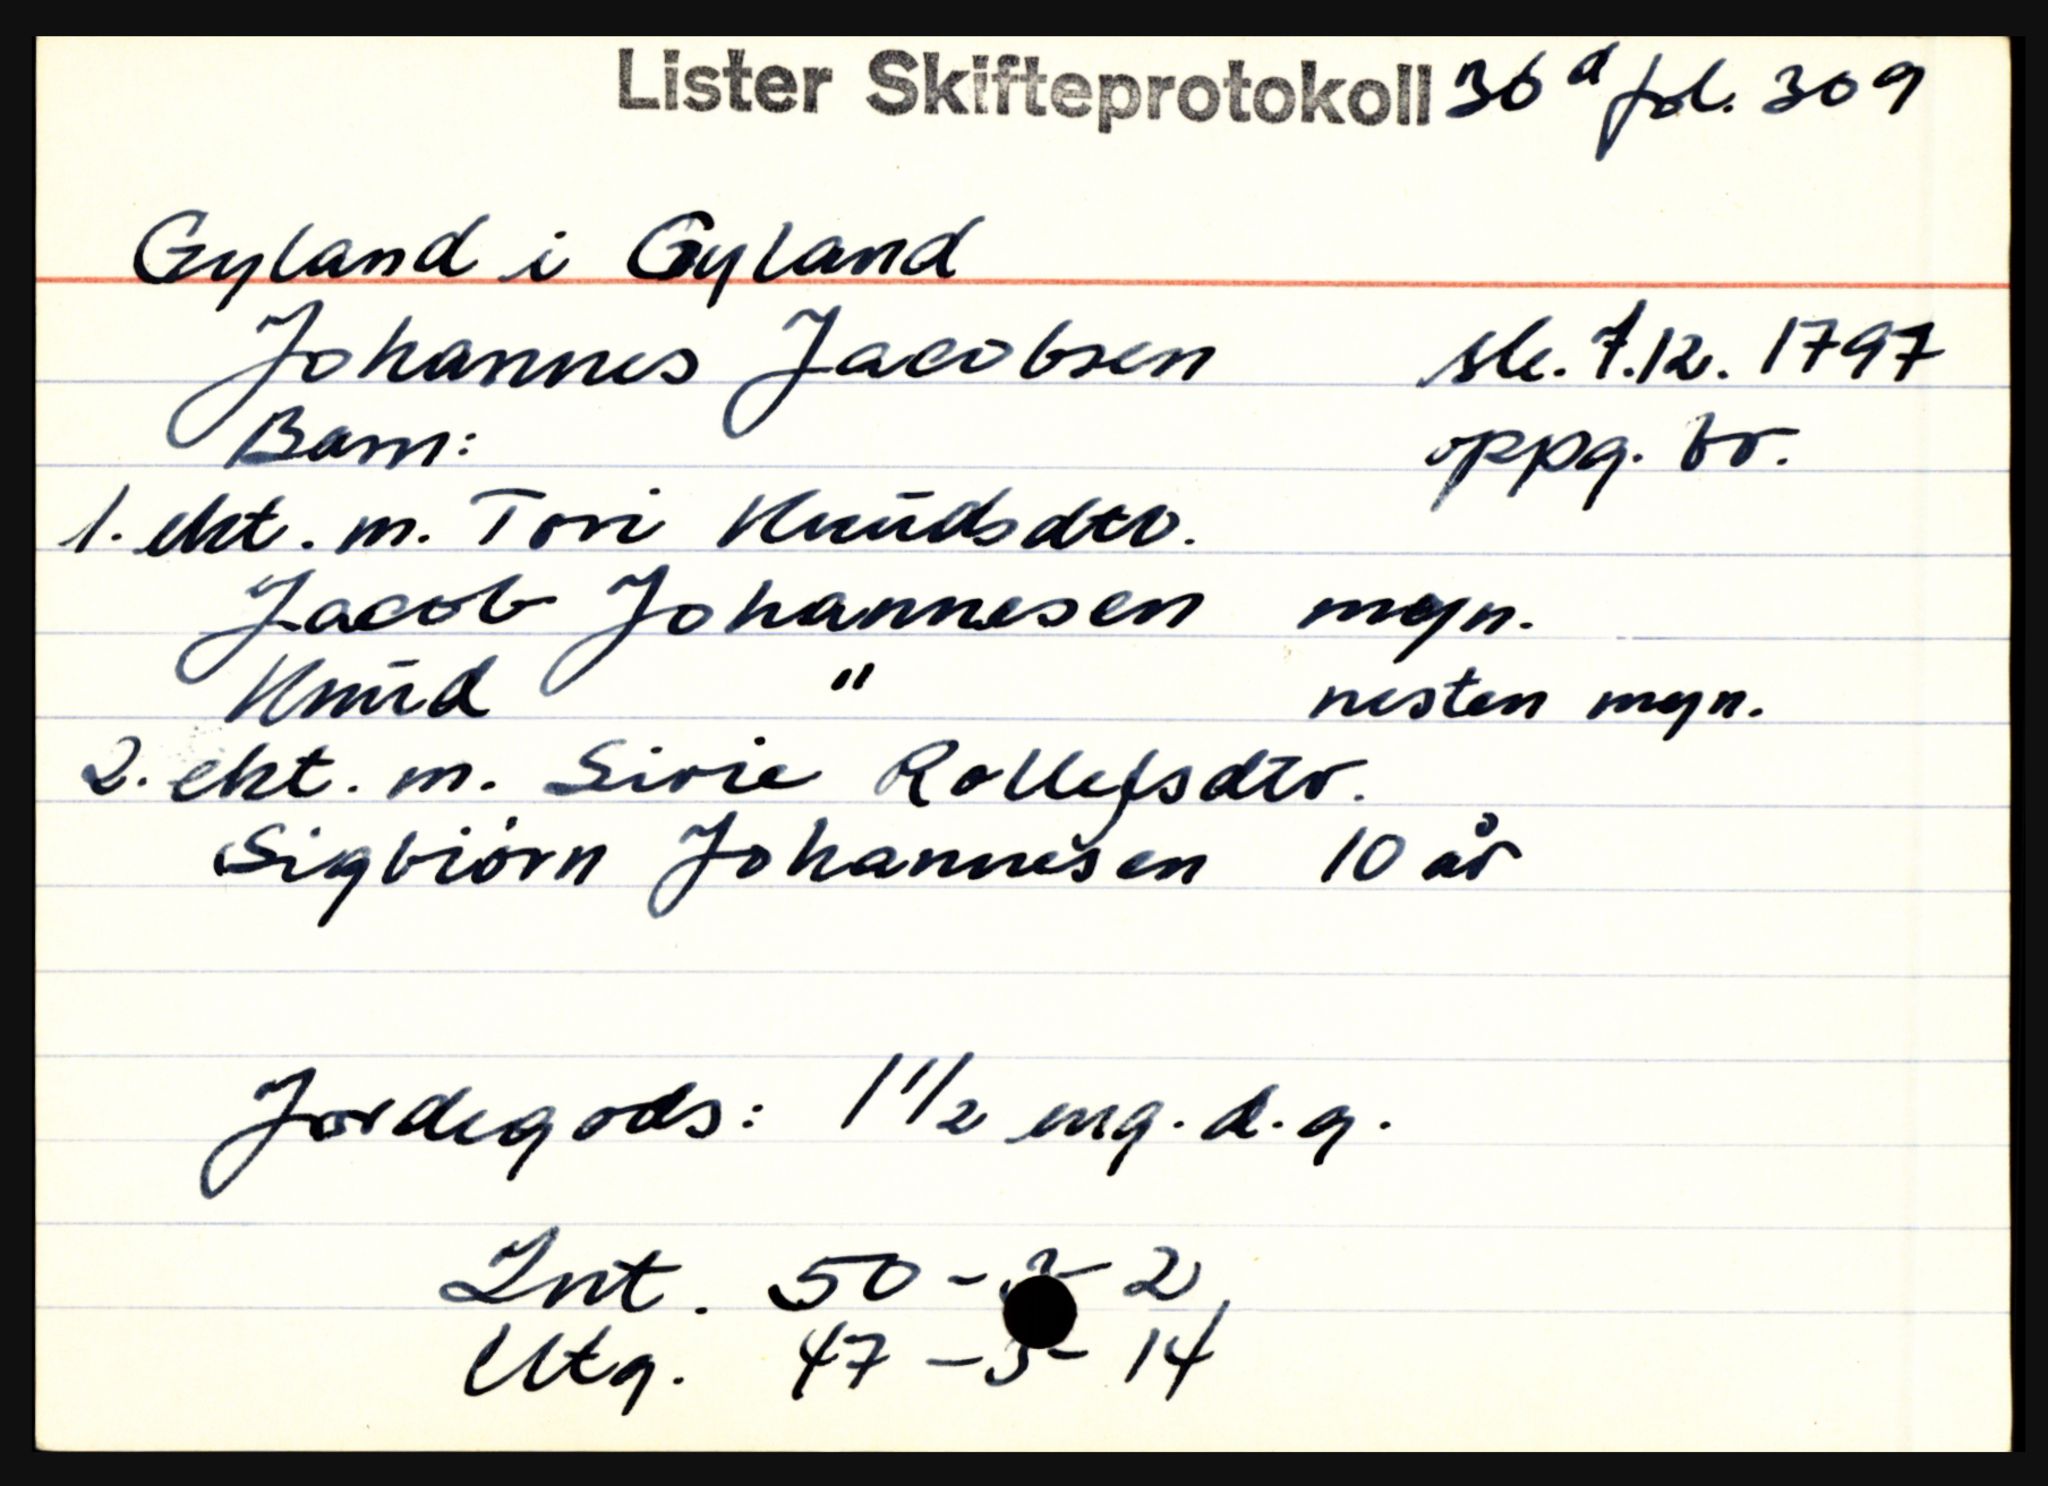 Lister Skifteprotokoll 36 a fol. 309
Gyland i Gyland
Johannes Jacobsen sk. 7.12. 1797
Barn: oppg. br.
1. ekt. m. Tori Knŭdsdtr.
Jacob Johannesen myn.
Knŭd " nesten myn.
2. ekt. m. Sirie Rollefsdtr.
Sigbiörn Johannesen 10 år
Jordegods: 1 1/2 eng. d. g.
Int. 50 - 2
Utg. 47 - 14